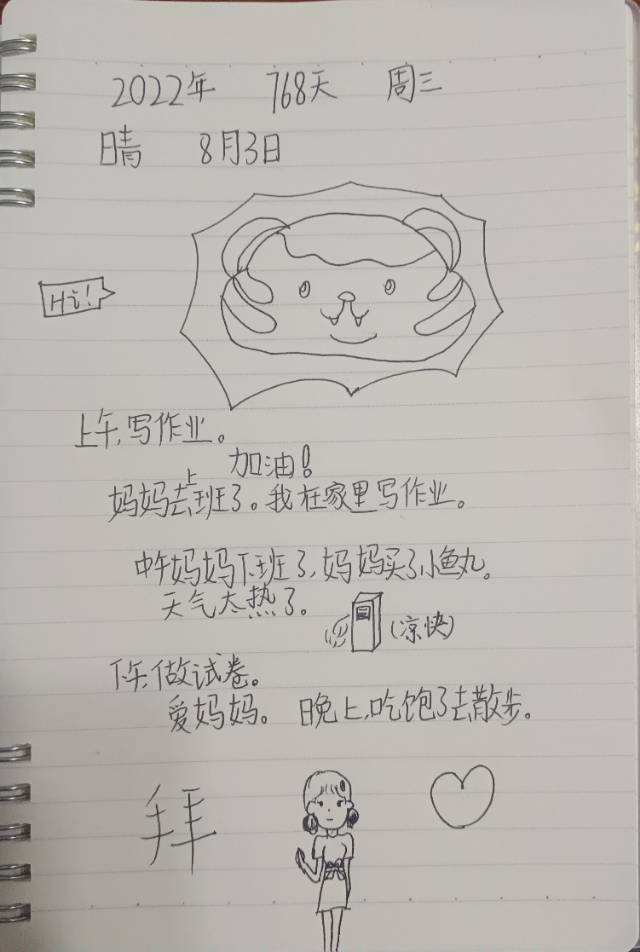 2022年 768天 周三
晴 8月3日
Hi!
上午,写作业。
加油!
妈妈去上班了。我在家里写作业。
中午妈妈下班了,妈妈买了小鱼丸。
天气太热了。
(凉快)
下午,做试卷。
爱妈妈。 晚上,吃饱了去散步。
拜